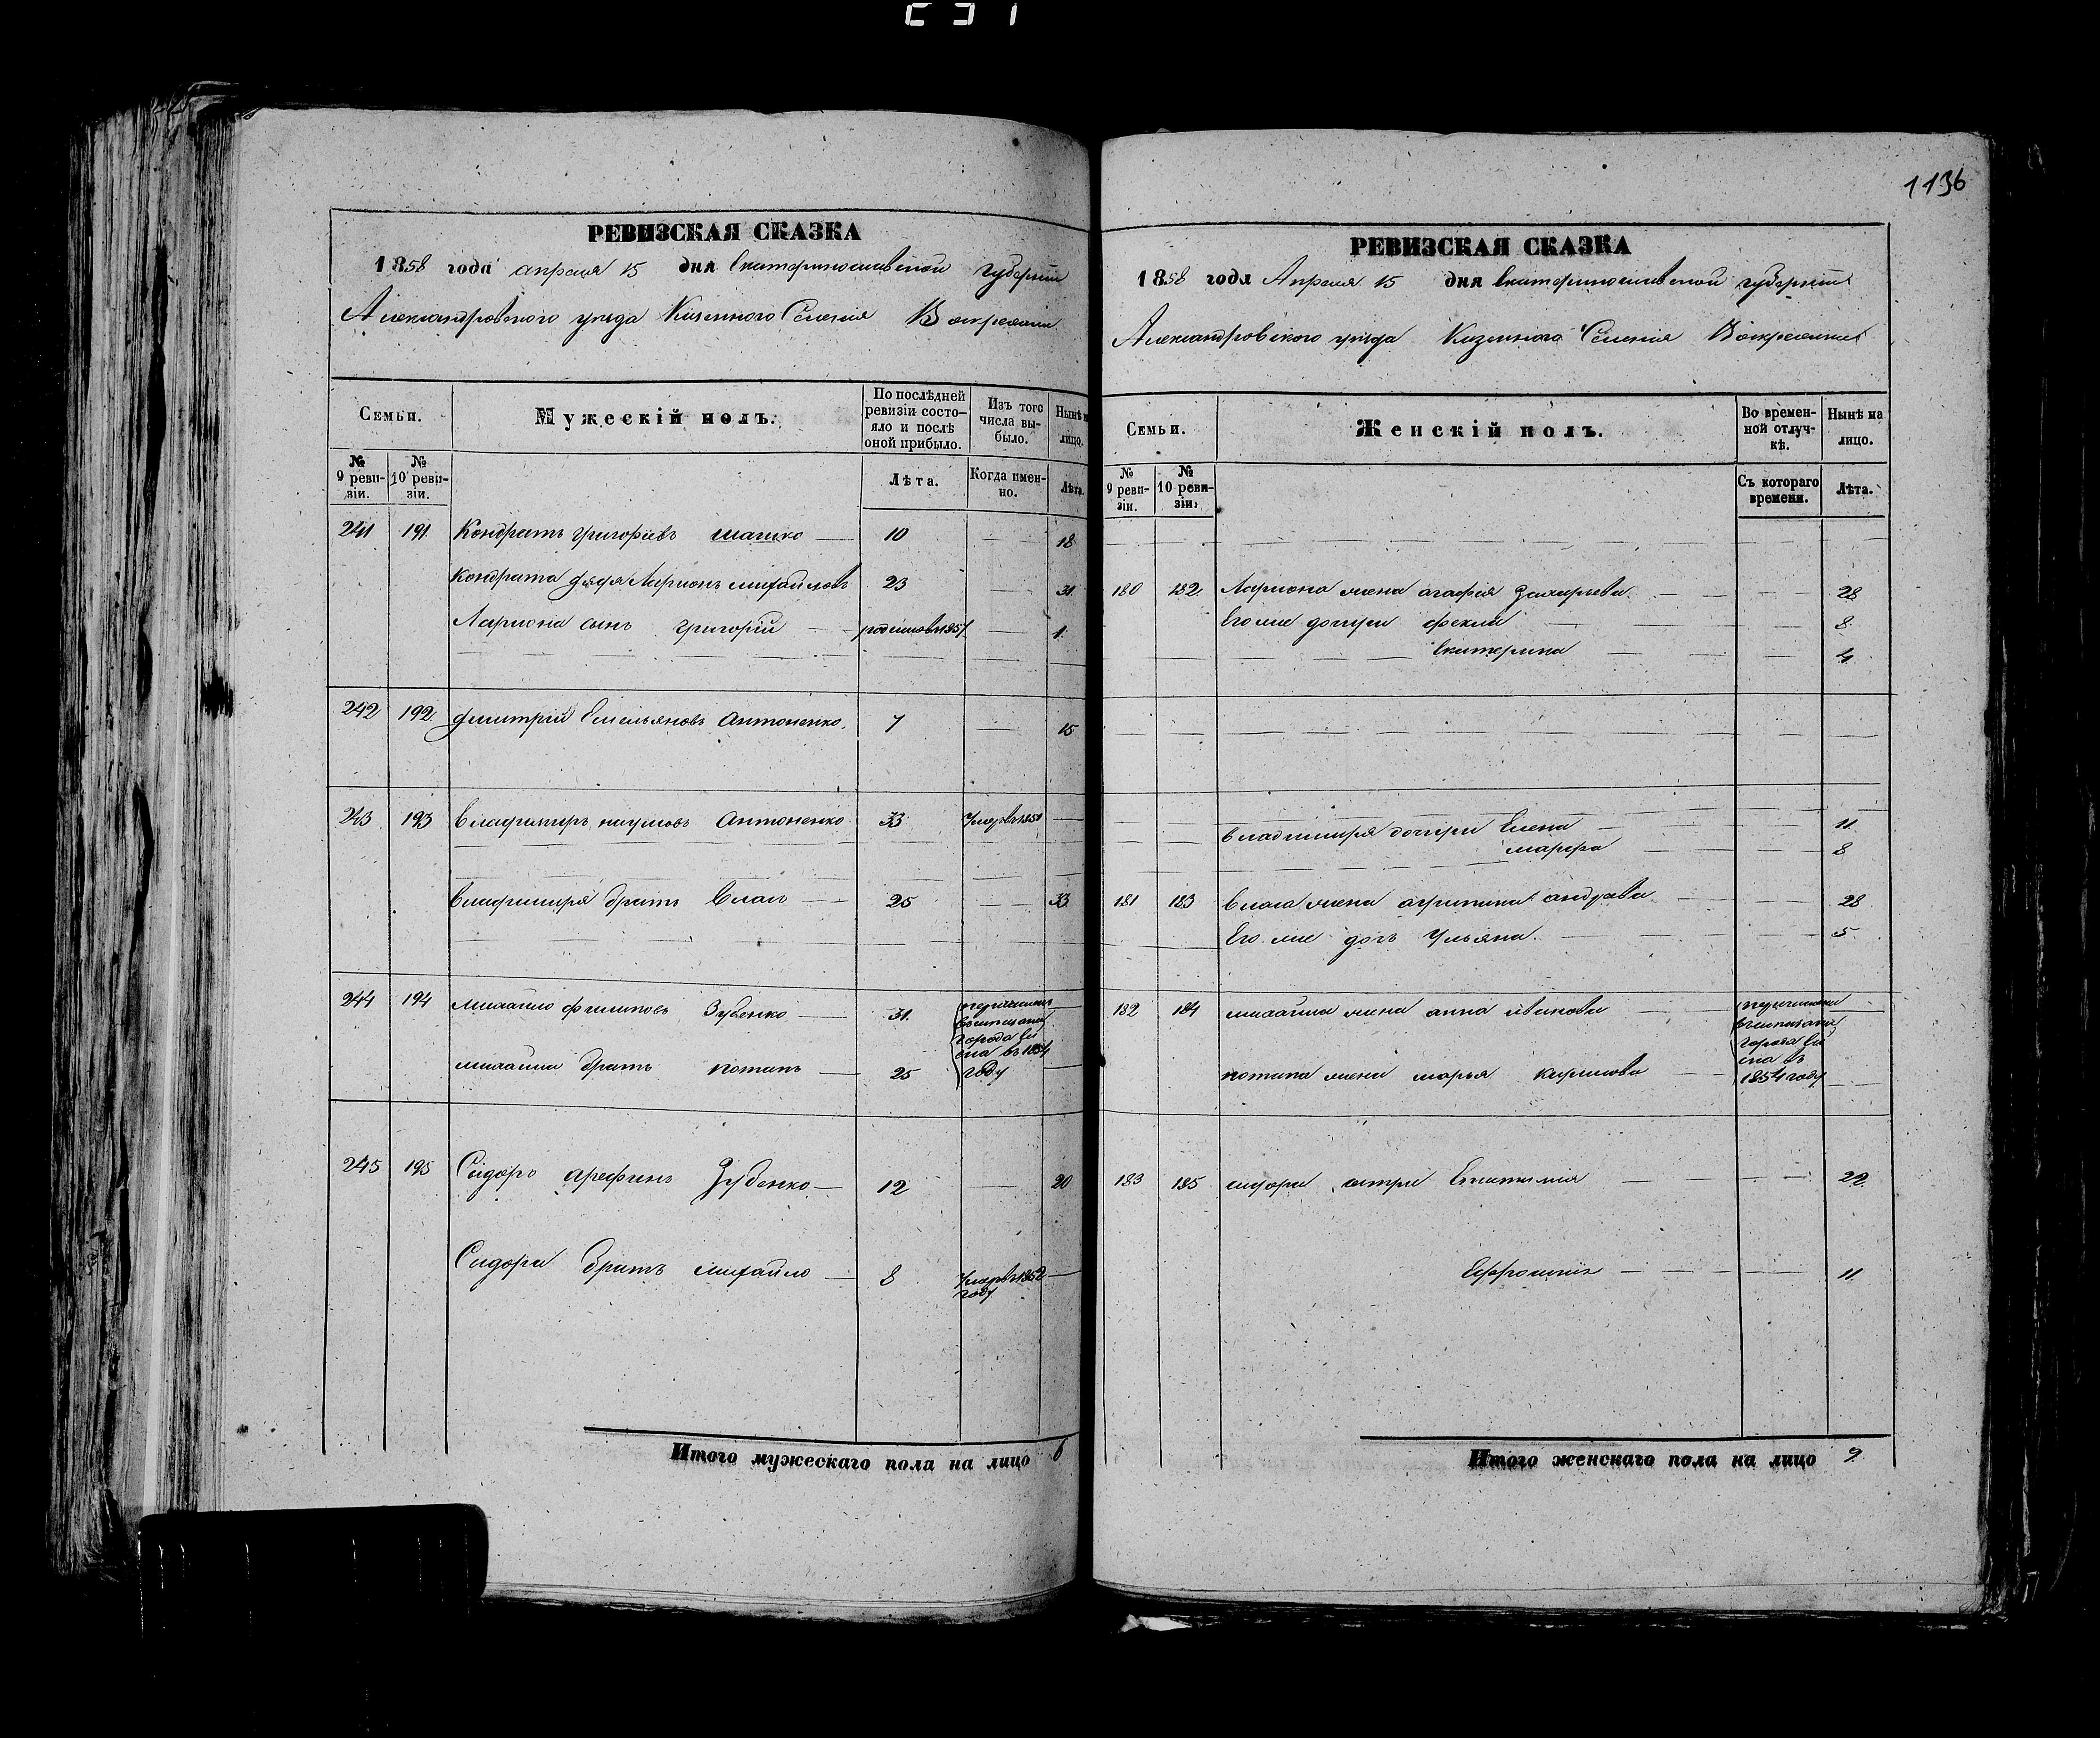 1136
РЕВИЗСКАЯ СКАЗКА
1858 года апреля 15 дня Екатеринославской губернии
Александровского уезда Казенного Селения Воскресенки
Семьи. Мужескій полъ. По послѣдней ревизіи состояло и послѣ оной прибыло. Изъ того числа выбыло. Нынѣ на лицо.
№ 9 ревизіи. № 10 ревизіи. Лѣта. Когда именно. Лѣта.
241 191 Кондратъ Григорьевъ 10 18
Кондрата дядя Ларионъ Михайловъ 23 31
Лариона сынъ Григорій 1857 1
242 192 Дмитрій Емельяновъ Антоненко 7 15
243 193 Владимиръ Наумовъ Антоненко 33
Владимира братъ Влас 25 33
244 194 Михайло Филиповъ Зубенко 31
города
въ 1854
Михайла братъ Потапъ 25 году
245 195 Сидоръ Арефинъ Зубенко 12 20
Сидора братъ Михайло 8 1852
году
Итого мужескаго пола на лицо 6
РЕВИЗСКАЯ СКАЗКА
1858 года Апреля 15 дня Екатеринославской губернии
Александровского уезда Казенного Селения Воскресенки
Семьи. Женскій полъ. Во временной отлучкѣ. Нынѣ на лицо.
№ 9 ревизіи. № 10 ревизіи. Съ котораго времени. Лѣта.
180 182 Лариона жена Агафия Захарьева 28
Его же дочери Фекла 8
Екатерина 4
Владимира дочери Елена 11
Марфа 8
181 183 Власа жена Акулина Андреева 28
Его же дочь Ульяна 5
182 184 Михайла жена Анна Иванова
города
Потапа жена Марья 1854 году
183 185 Сидора сестры 22
Ефросиния 11
Итого женскаго пола на лицо 9